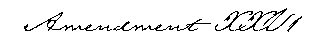 Amendment XXVI